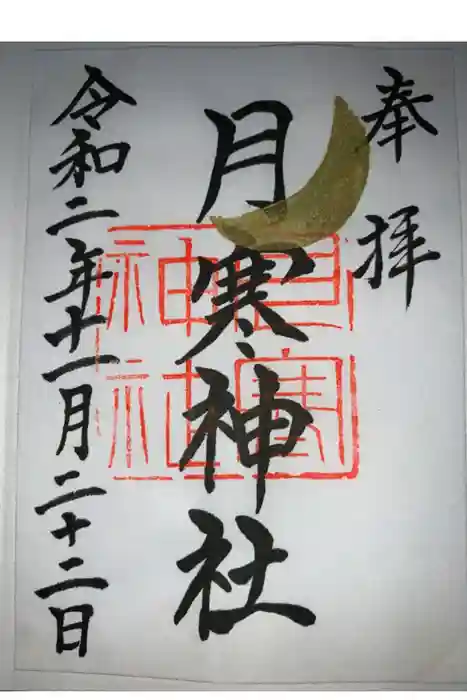 奉拝
月寒神社
月寒
神社
令和二年十一月二十二日